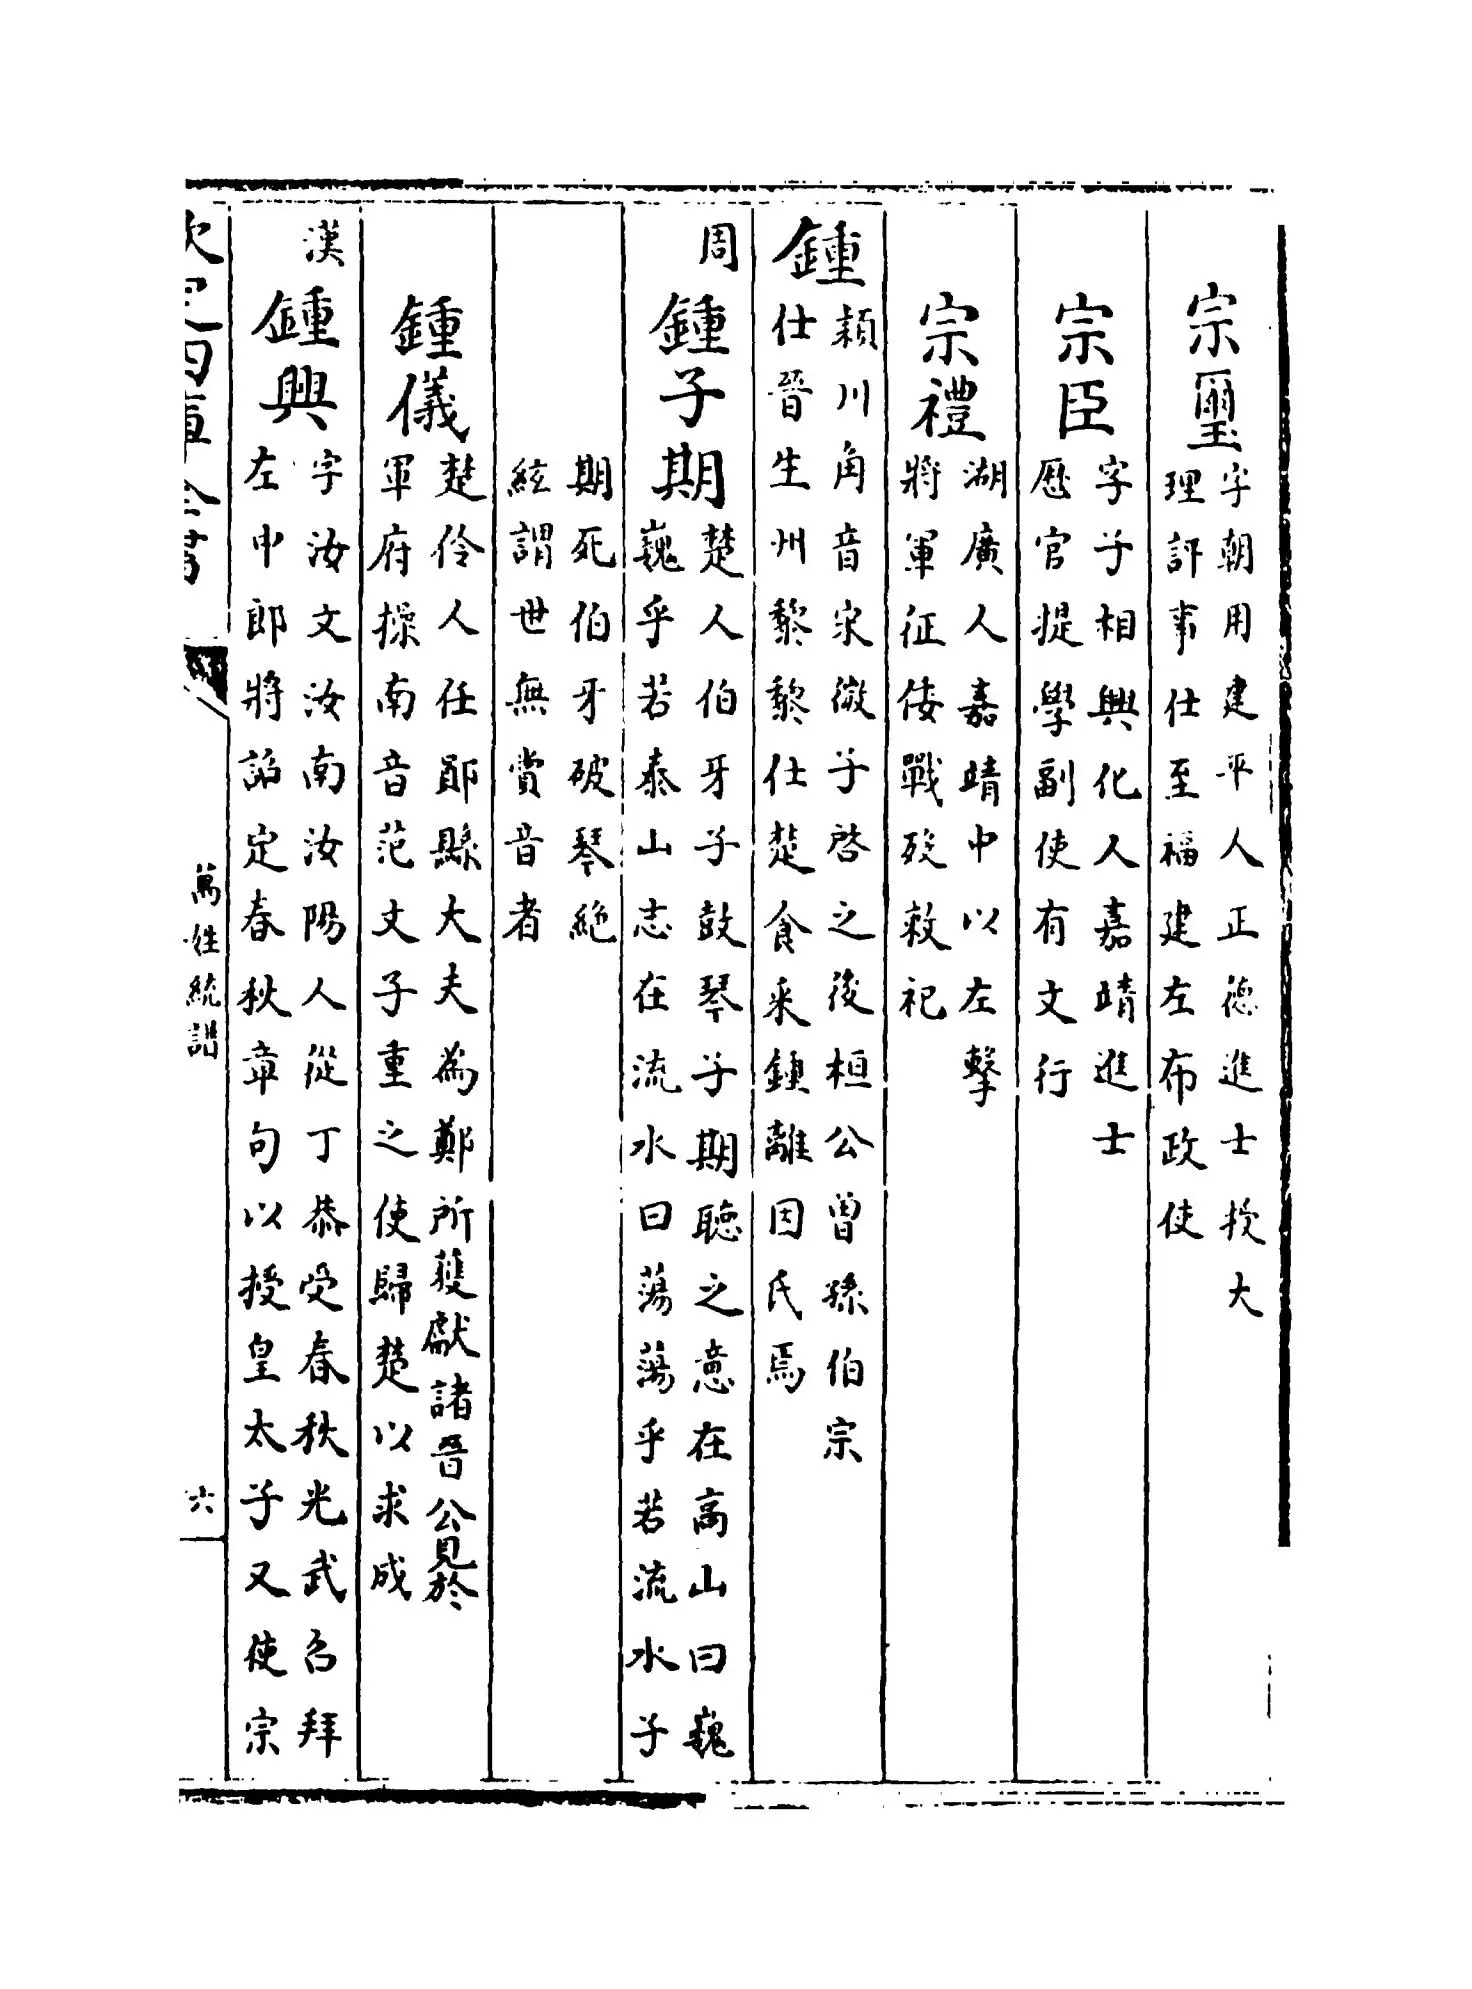 宗璽字朝用建平人正德進士授大
理評事仕至福建左布政使
宗臣字子相興化人嘉靖進士
歷官提學副使有文行
宗禮湖廣人嘉靖中以左擊
將軍征倭戰歿敕祀
鍾潁川角音宋微子啓之後桓公曾孫伯宗
仕晉生州黎黎仕楚食采鍾離因氏焉
周
鍾子期楚人伯牙子鼓琴子期聽之意在高山曰巍
巍乎若泰山志在流水曰蕩蕩乎若流水子
期死伯牙破琴絕
絃謂世無賞音者
鍾儀楚伶人任鄖縣大夫為鄭所獲獻諸晉公見於
軍府操南音范文子重之使歸楚以求成
漢
鍾興字汝文汝南汝陽人從丁恭受春秋光武召拜
左中郎將詔定春秋章句以授皇太子又使宗
欽定四庫全書
萬姓統譜
六